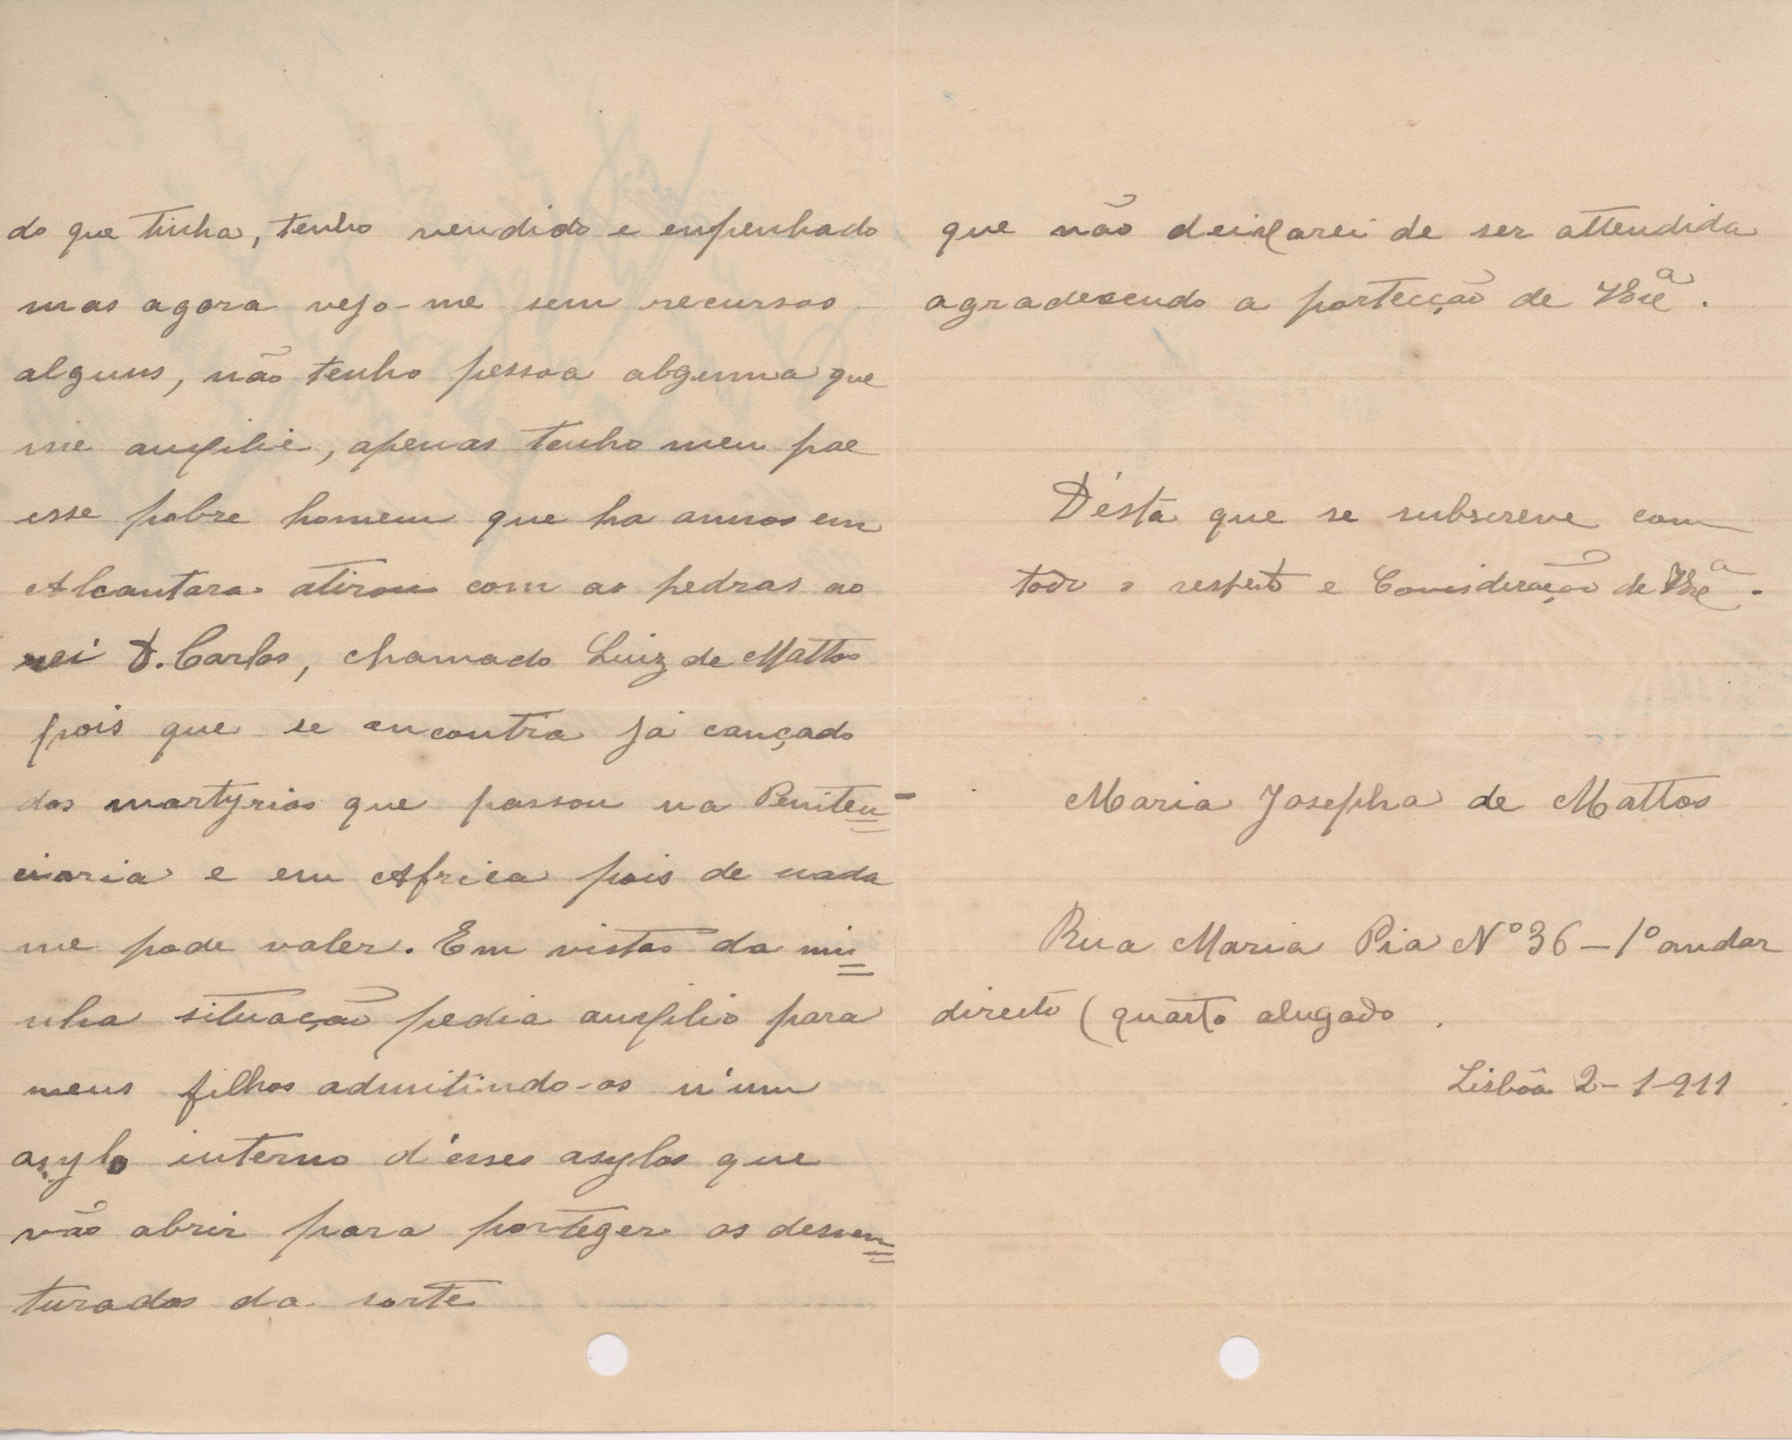 do que tinha, tenho vendido e enpenhado
mas agora vejo-me sem recursos
alguns, não tenho pessoa alguma que
me auxilie, apenas tenho meu pae
esse pobre homem que ha annos em
Alcantara atirou com as pedras ao
rei D. Carlos, chamado Luiz de Mattos
pois que se encontra já cançado
dos martyrios que passou na Peniten-
ciaria e em Africa pois de nada
me pode valer. Em vistas da mi=
nha situação pedia auxilio para
meus filhos admitindo-os n'um
asylo interno d'esses asylos que
vão abrir para porteger os desven=
turados da sorte
que não deixarei de ser attendida
agradecendo a portecção de VExª.
D'ésta que se subscreve com
todo o respeito e Consideração de VExª.
Maria Josepha de Mattos
Rua Maria Pia Nº 36 – 1º andar
direito (quarto alugado.
Lisbôa 2-1-911